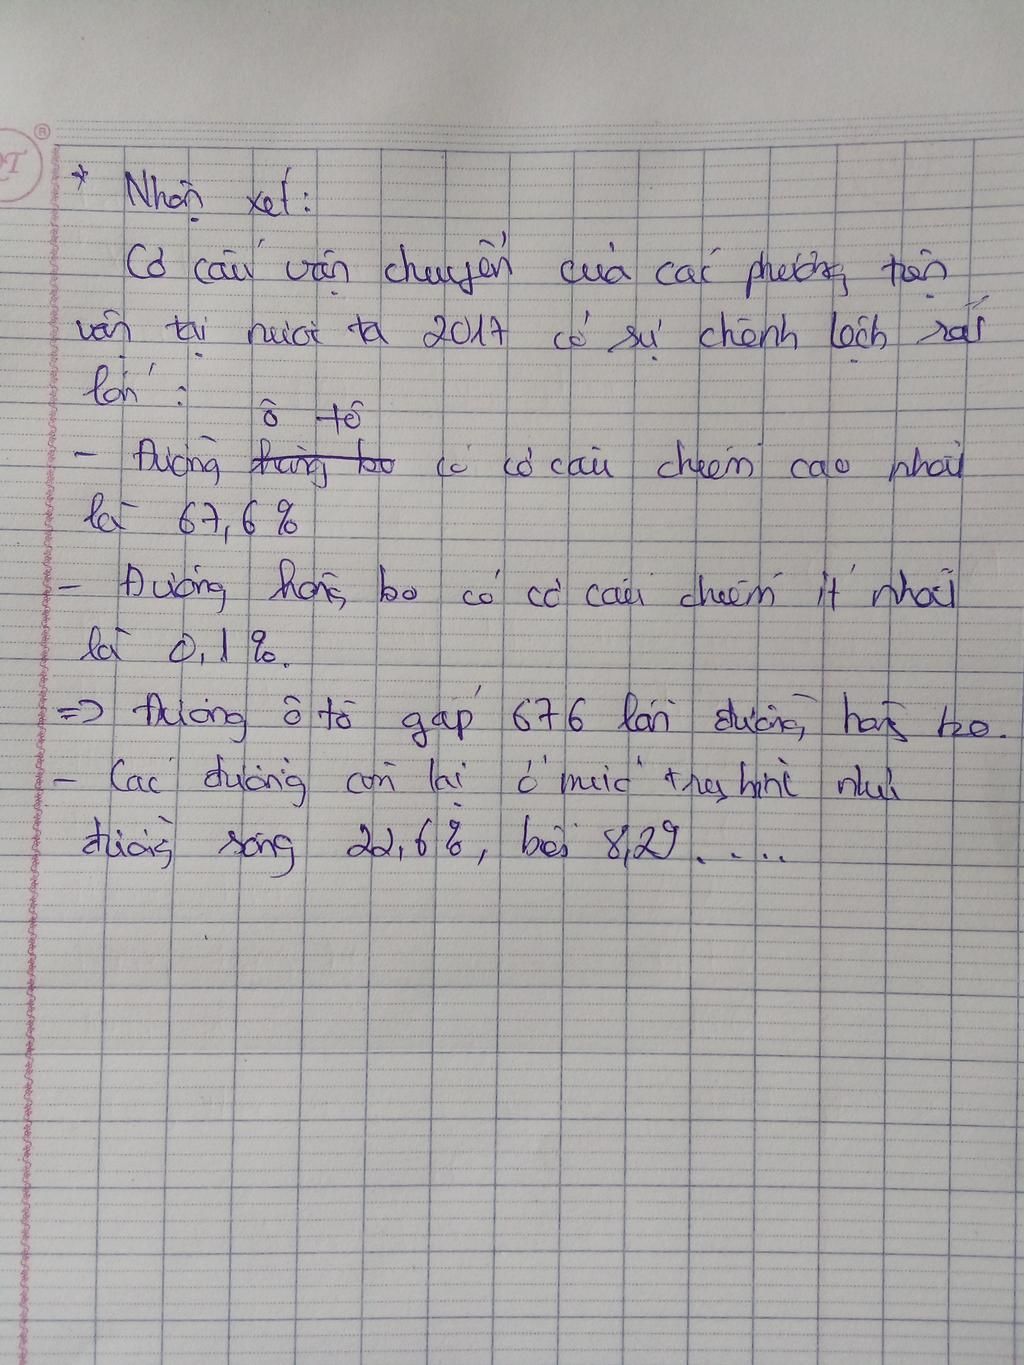 * Nhận xét:
Cơ cấu vận chuyển của các phương tiện
vận tải nước ta 2017 có sự chênh lệch rất
lớn :
ô tô
- Đường hàng ko có cơ cấu chiếm cao nhất
là 67,6%
- Đường hàng ko có cơ cấu chiếm ít nhất
là 0,1%.
=> Đường ô tô gấp 676 lần đường hàng ko.
- Các đường còn lại ở mức như
đường sông 22,6%, 8,29.....